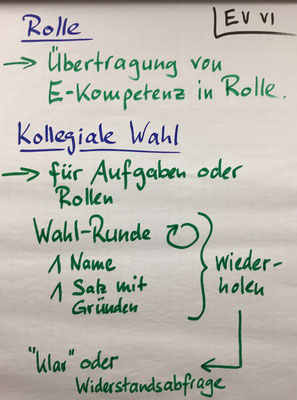 EV VI
Rolle
→ Übertragung von
E-Kompetenz in Rolle.
Kollegiale Wahl
→ für Aufgaben oder
Rollen
Wahl-Runde
1 Name
1 Satz mit
Gründen
Wieder-
holen
"Klar" oder
Widerstandsabfrage